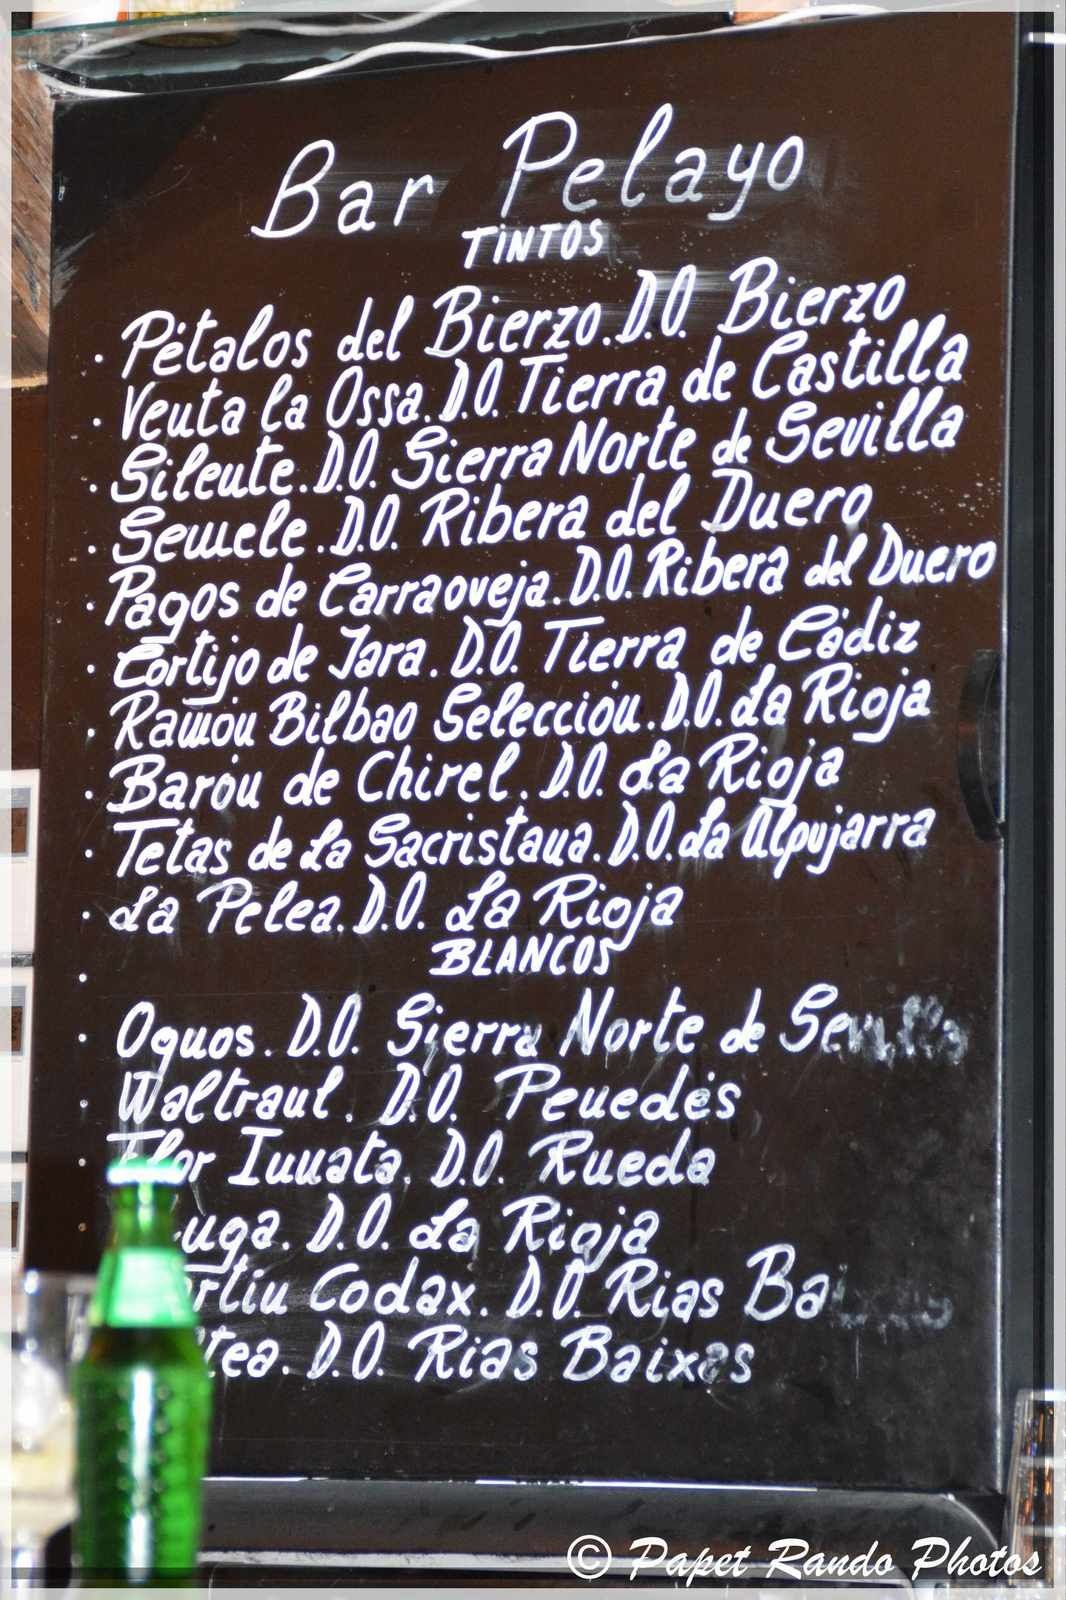 Bar Pelayo
TINTOS
. Pétalos del Bierzo. D.O. Bierzo
. Venta la Ossa. D.O. Tierra de Castilla
. Silente. D.O. Sierra Norte de Sevilla
. Semele. D.O. Ribera del Duero
. Pagos de Carraoveja. D.O. Ribera del Duero
. Cortijo de Jara. D.O. Tierra de Cádiz
. Ramón Bilbao Selección. D.O. La Rioja
. Barón de Chirel. D.O. La Rioja
. Tetas de La Sacristana. D.O. La Alpujarra
. La Pelea. D.O. La Rioja
BLANCOS
. Oquos. D.O. Sierra Norte de Sevilla
. Waltraul. D.O. Penedés
. Flor Innata. D.O. Rueda
D.O. La Rioja
Codax. D.O. Rias
D.O. Rias Baixas
© Papet Rando Photos